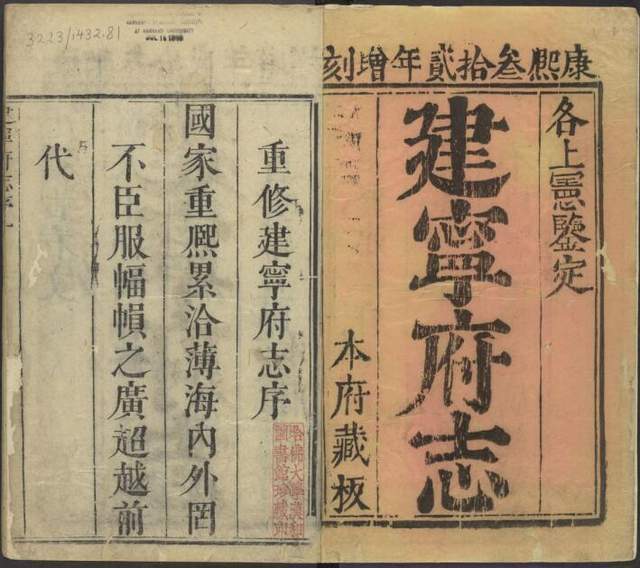 康熙叁拾貳年增刻
各上憲鑒定
建寧府志
本府藏板
重修建寧府志序
國家重熙累洽薄海內外罔
不臣服幅幀之廣超越前
代
3223/1432.81